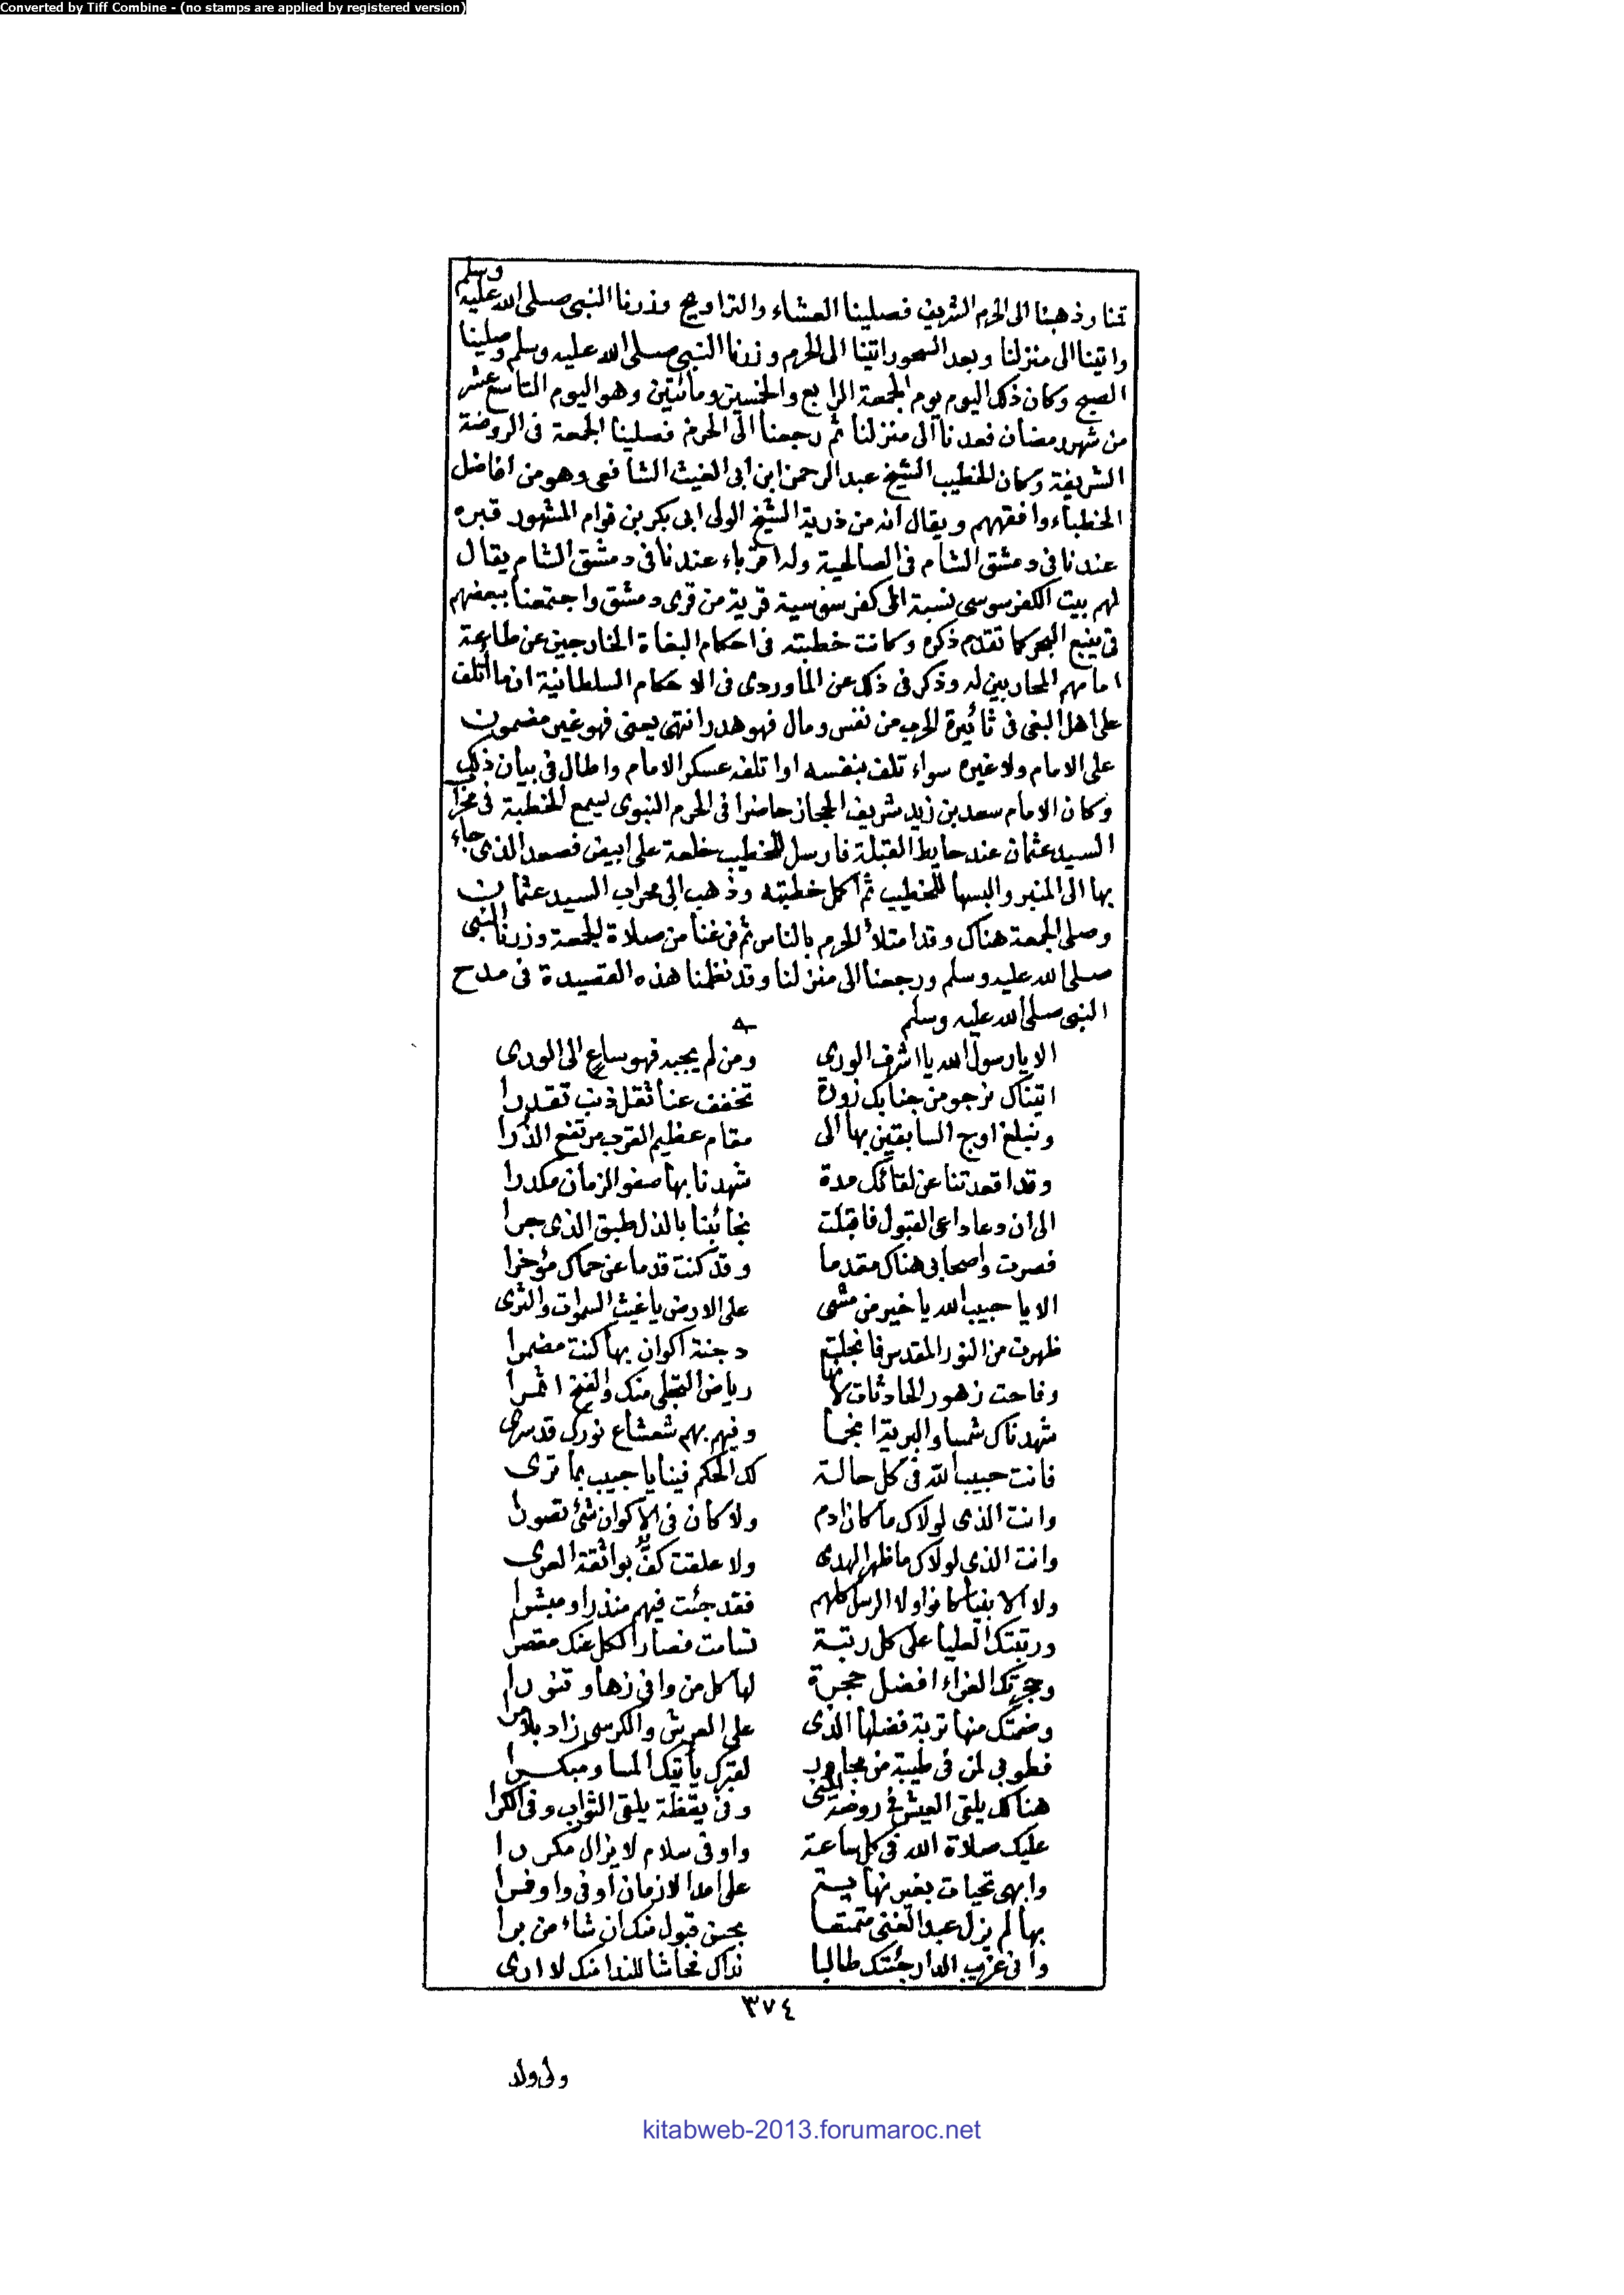 Converted by Tiff Combine - (no stamps are applied by registered version)
قمنا وذهبنا الى الحرم الشريف فصلينا العشاء والتراويح وزرنا النبى صلى الله عليه وسلم
واتينا الى منزلنا وبعد السحور اتينا الى الحرم وزرنا النبى صلى الله عليه وسلم وصلينا
الصبح وكان ذلك اليوم يوم الجمعة الرابع والخمسين ومائتين وهو اليوم التاسع عشر
من شهر رمضان فعدنا الى منزلنا ثم رجعنا الى الحرم فصلينا الجمعة فى الروضة
الشريفة وكان الخطيب الشيخ عبد الرحمن ابن ابى الغيث الشافعى وهو من افاضل
الخطباء وافقههم ويقال انه من ذرية الشيخ الولى ابى بكر بن قوام المشهور قبره
عندنا فى دمشق الشام فى الصالحية وله اقرباء عندنا فى دمشق الشام يقال
لهم بيت الكفرسوسى نسبة الى كفر سوسية قرية من قرى دمشق واجتمعنا ببعضهم
فى ينبع البحر كما تقدم ذكره وكانت خطبته فى احكام البغاة الخارجين عن طاعة
امامهم المحاربين له وذكر فى ذلك عن الماوردى فى الاحكام السلطانية ان ما اتلف
على اهل البغى فى ثائرة الحرب من نفس ومال فهو هدر انتهى يعنى فهو غير مضمون
على الامام ولا غيره سواء تلف بنفسه او اتلفه عسكر الامام واطال فى بيان ذلك
وكان الامام سعد بن زيد شريف الحجاز حاضرا فى الحرم النبوى يسمع الخطبة فى محراب
السيد عثمان عند حايط القبلة فارسل للخطيب خلعة على ابيض فصعد الذى جاء
بها الى المنبر والبسها للخطيب ثم اكمل خطبته وذهب الى محراب السيد عثمان
وصلى الجمعة هناك وقد امتلأ الحرم بالناس ثم فرغنا من صلاة الجمعة وزرنا النبى
صلى الله عليه وسلم ورجعنا الى منزلنا وقد نظمنا هذه القصيدة فى مدح
النبى صلى الله عليه وسلم
الا يا رسول الله يا اشرف الورى ومن لم يجبه فهو ساعٍ الى الورى
اتيناك نرجو من جنابك زورة تخفف عنا ثقل ذنب تقدرا
ونبلغ اوج السابقين بها الى مقام عظيم القرب مرتفع الذرا
وقد اقعدتنا عن لقائك مدة شهدنا بها صفو الزمان مكدرا
الى ان دعا داعى القبول فاقبلت نجائبنا بالذل طبق الذى جرا
فصرت واصحابى هناك مقدما وقد كنت قدما عن حماك مؤخرا
الا يا حبيب الله يا خير من مشى على الارض يا غيث السموات والثرى
ظهرت من النور المقدس فانجلت دجنة اكوان بها كنت مضمرا
وفاحت زهور الحادثات لانها رياض التجلى منك والفتح اثمرا
شهدناك شمسا والبرية انجما وفيهم بهم شعشاع نورك قد سرى
فانت حبيب الله فى كل حالة لك الحكم فينا يا حبيب بما ترى
وانت الذى لولاك ما كان ادم ولا كان فى الاكوان شئ تصورا
وانت الذى لولاك ما ظهر الهدى ولا علقت كفٌّ بواثقة العرى
ولا الانبيا كانوا ولا الرسل كلهم فقد جئت فيهم منذرا ومبشرا
ورتبتك العليا على كل رتبة تسامت فصار الكل عنك مقصرا
وحجرتك الغراء افضل حجرة لها كل من وافى زها وتنورا
وضمتك منها تربة فضلها الذى على العرش والكرسى زاد بلا مرا
فطوبى لمن فى طيبة من مجاور لقبرك يأتيك المسا ومبكرا
هنالك يلقى العيش فى روضة المنى وفى يقظة يلقى الثواب وفى الكرا
عليك صلاة الله فى كل ساعة واوفى سلام لا يزال مكررا
وابهى تحيات بغير نهاية على امد الازمان اوفى واوفرا
بها لم يزل عبد الغنى متمتعا بحسن قبول منك ان شاء من برا
وانى غريب الدار جئتك طالبا نداك فحاشا للندا منك لا ارى
٣٧٤
ولى ولد
kitabweb-2013.forumaroc.net